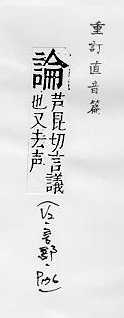 重訂直音篇
論 芦昆切言議
也又去声
(V2·言部·P96)